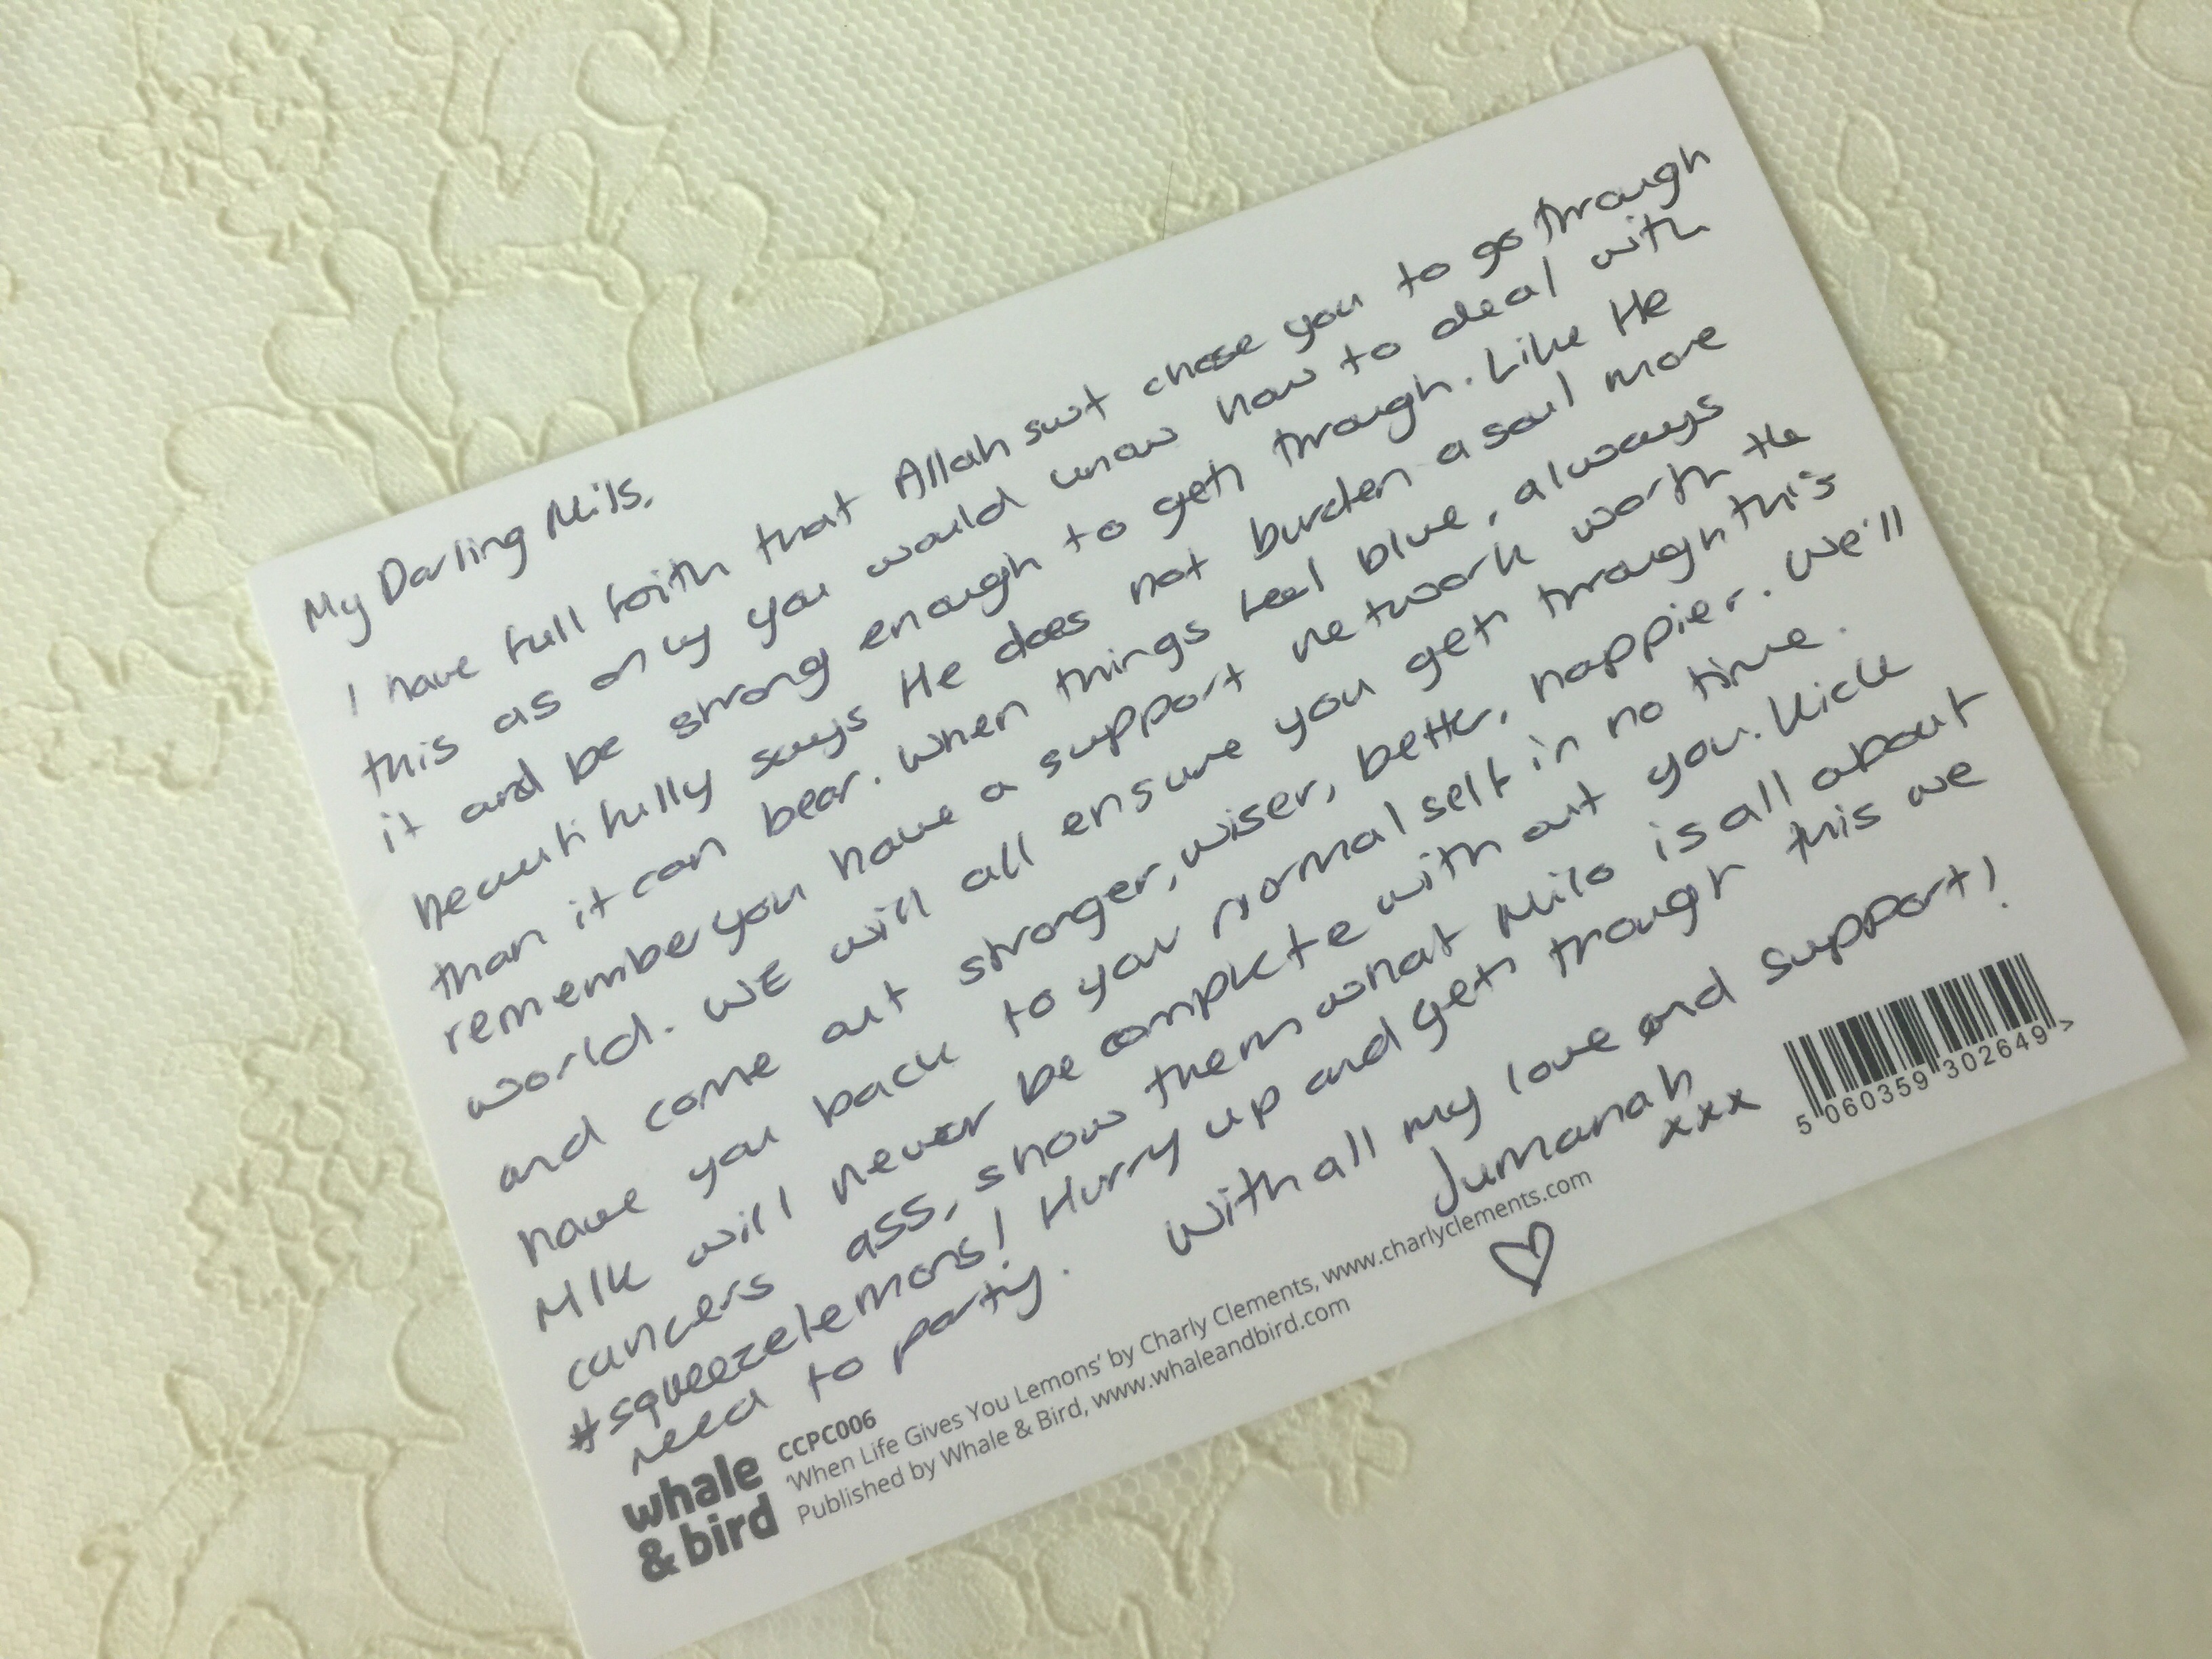 My Darling Mils,
I have full faith that Allah swt chose you to go through
this as only you would know how to deal with
it and be strong enough to get through. Like He
beautifully says He does not burden a soul more
than it can bear. When things feel blue, always
remember you have a support network worth the
world. WE will all ensure you get through this
and come out stronger, wiser, better, happier. We'll
have you back to your normal self in no time.
MIK will never be complete without you. Kick
cancers ass, show them what Milo is all about
#squeezelemons! Hurry up and get through this we
need to party.
With all my love and support!
Jumanah
xxx
whale
& bird
CCPC006
'When Life Gives You Lemons' by Charly Clements, www.charlyclements.com
Published by Whale & Bird, www.whaleandbird.com
5 060359 302649 >